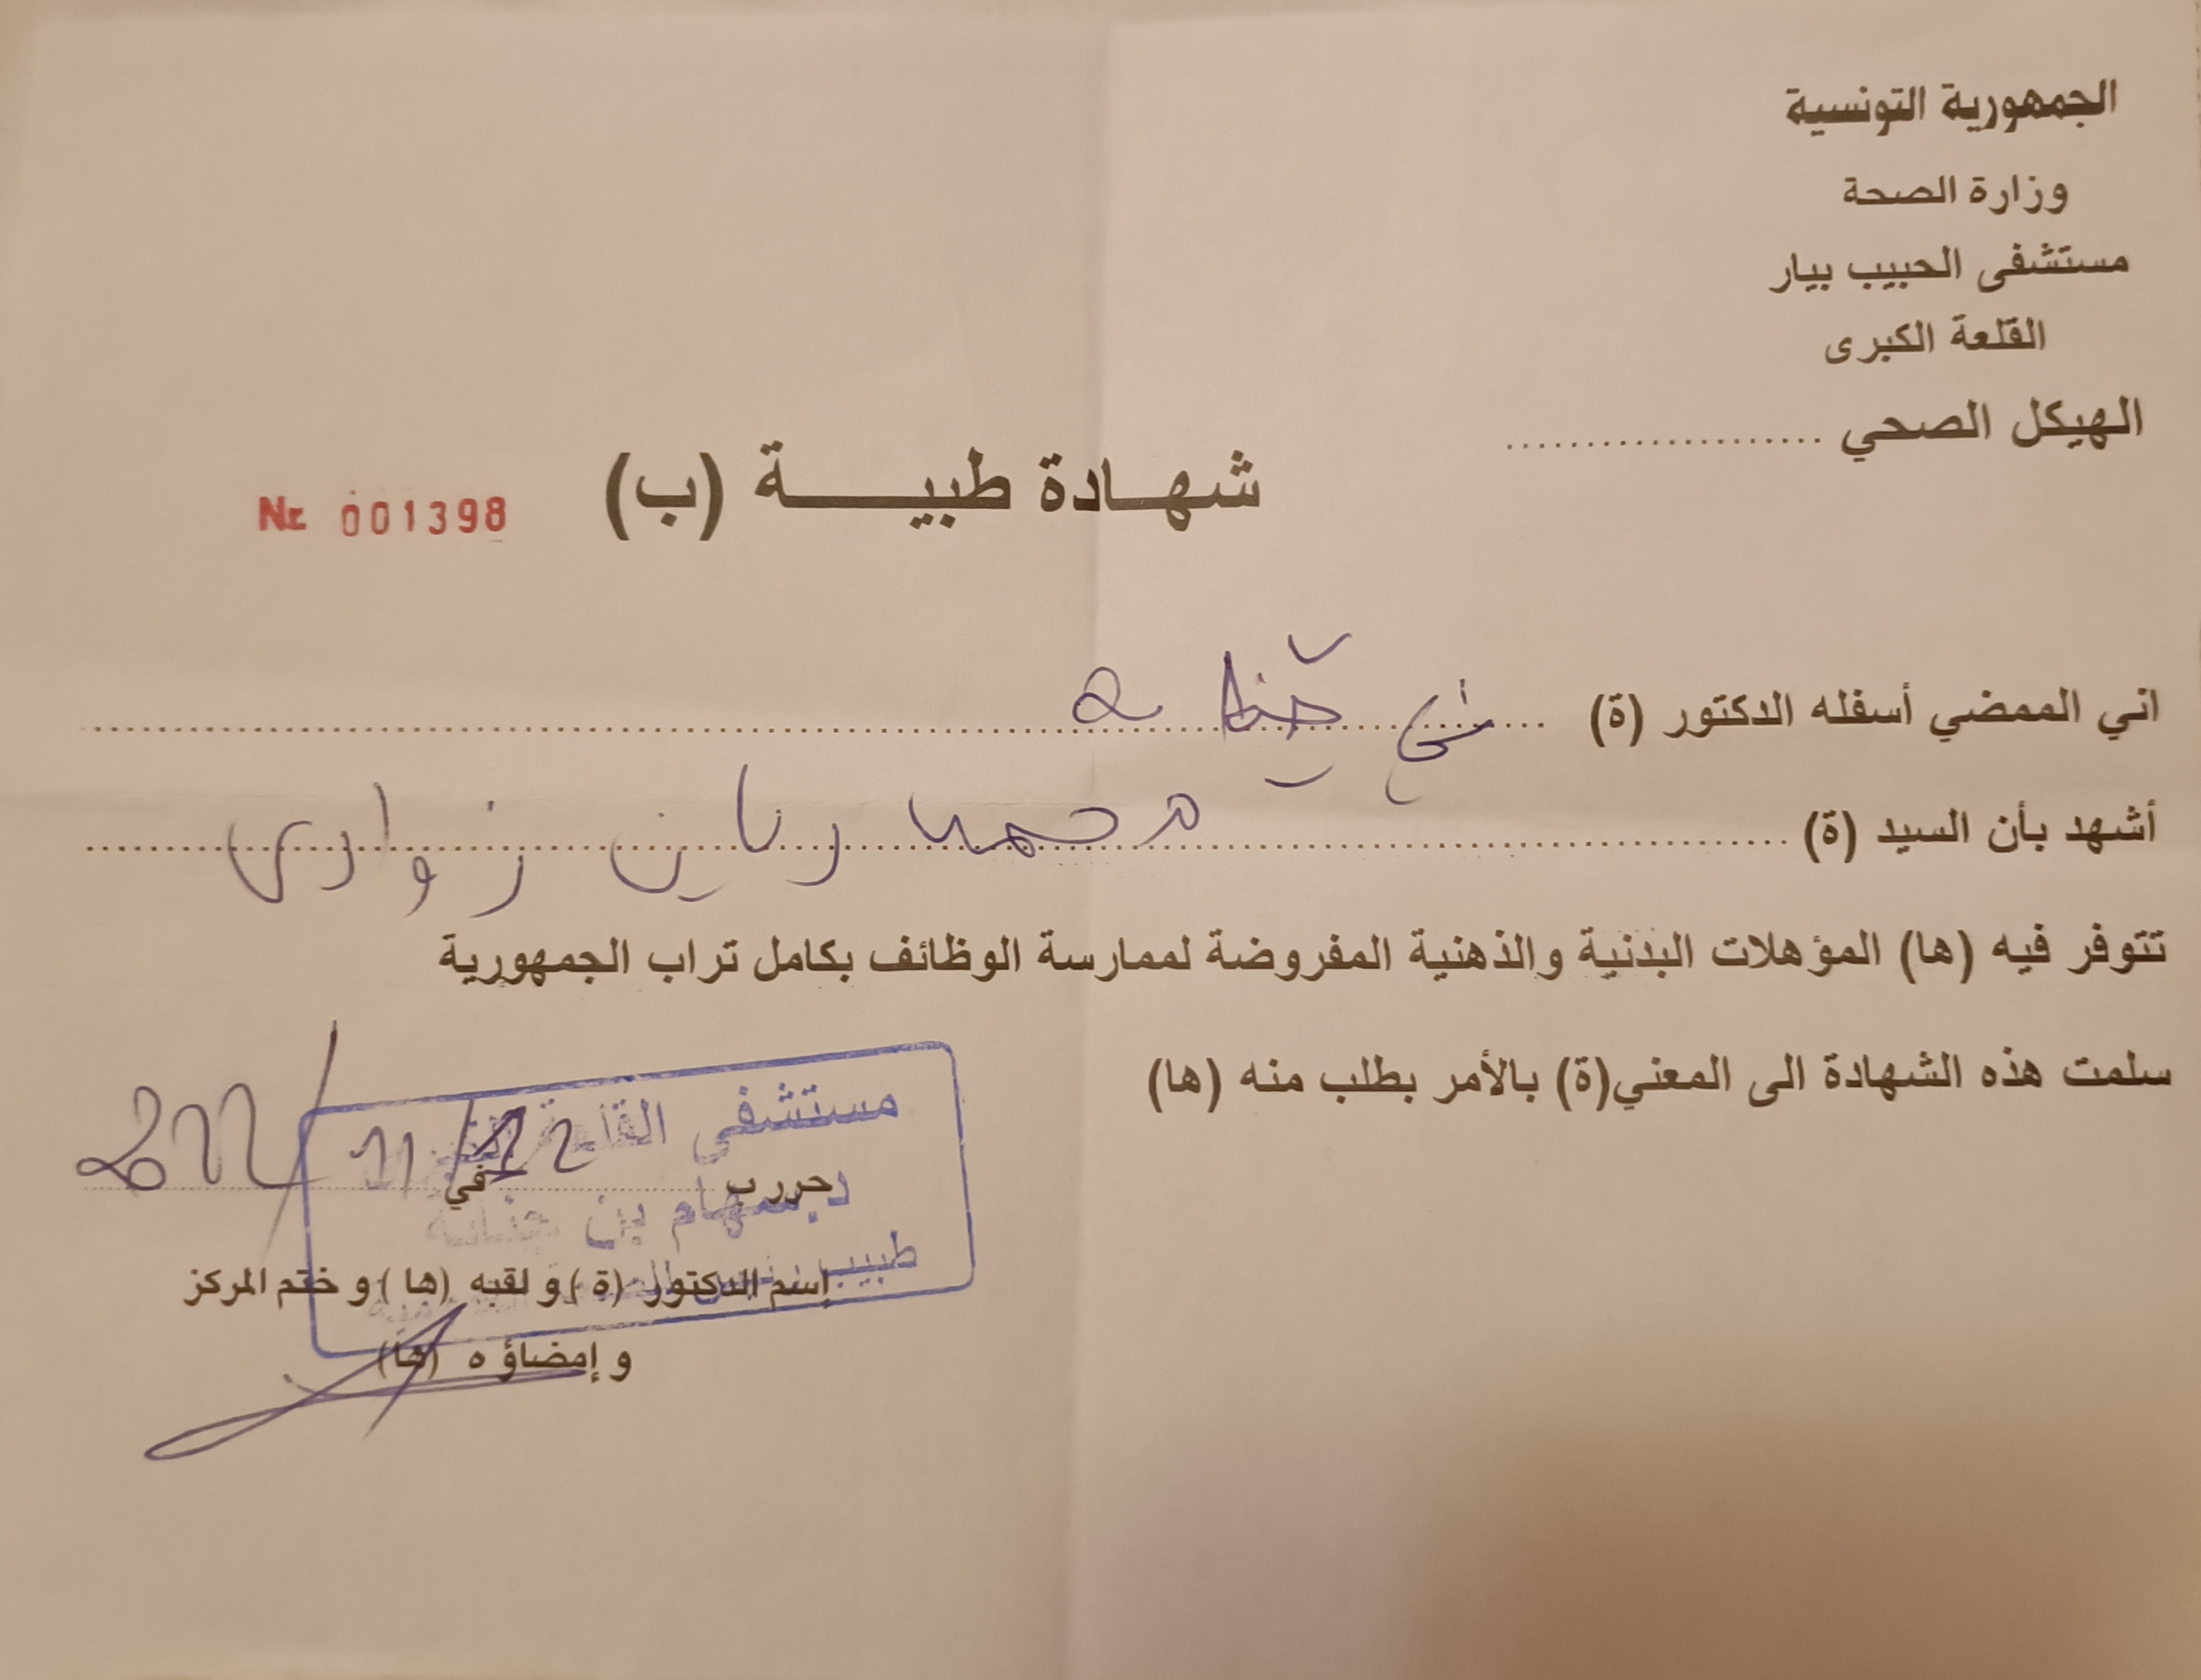 الجمهورية التونسية
وزارة الصحة
مستشفى الحبيب بيار
القلعة الكبرى
الهيكل الصحي ....................
شهادة طبية (ب)
Nr 001398
اني الممضي أسفله الدكتور (ة)
أشهد بأن السيد (ة) محمد ريان زواري
تتوفر فيه (ها) المؤهلات البدنية والذهنية المفروضة لممارسة الوظائف بكامل تراب الجمهورية
سلمت هذه الشهادة الى المعني(ة) بالأمر بطلب منه (ها)
مستشفى القلعة
حرر ب في
سهام بن
طبيب
إسم الدكتور (ة) و لقبه (ها) و ختم المركز
و إمضاؤه (ها)